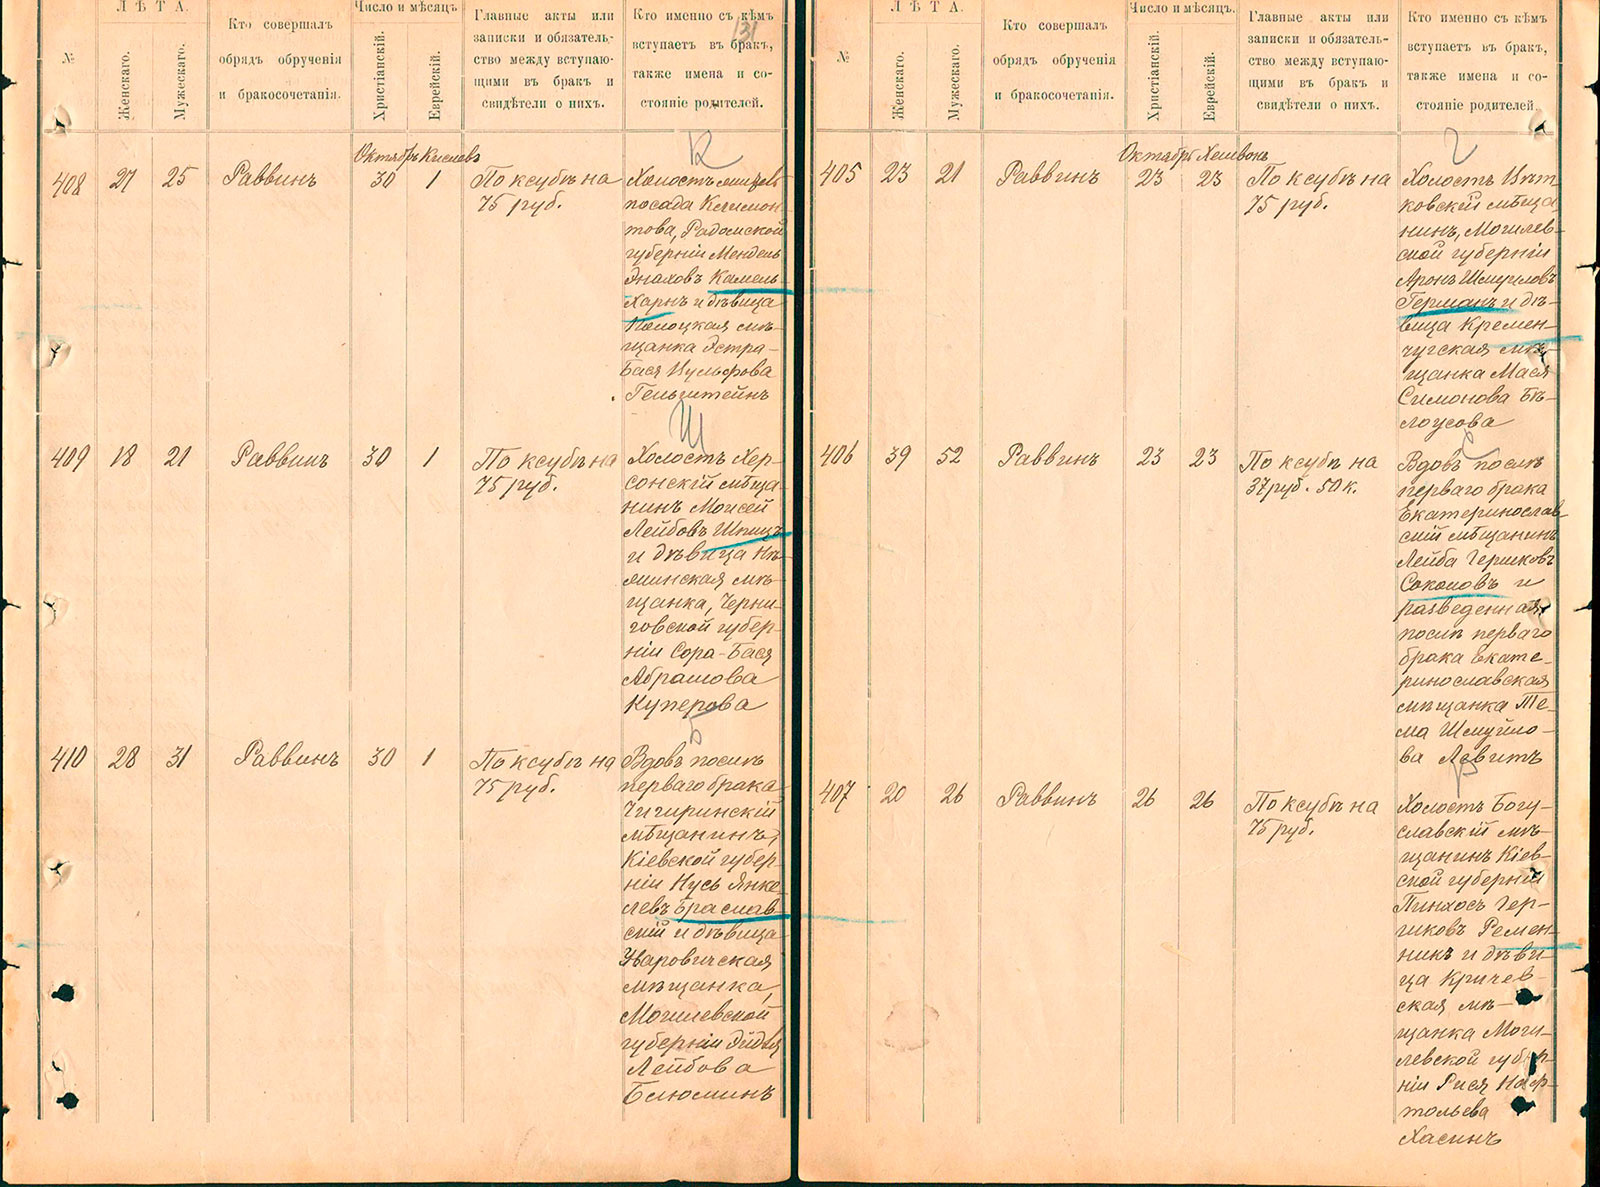 ЛѢТА.
Число и мѣсяцъ
№
Женскаго.
Мужескаго.
Кто совершалъ
обрядъ обрученія
и бракосочетанія.
Христіанскій.
Еврейскій.
Главные акты или
записки и обязатель-
ство между вступаю-
щими въ бракъ и
свидѣтели о нихъ.
Кто именно съ кѣмъ
вступаетъ въ бракъ,
также имена и со-
стояніе родителей.
131
К
Октябрь Кислевъ
408 27 25 Раввинъ 30 1
По ксубѣ на
75 руб.
Холостъ мѣщан.
посада Климон-
това, Радомской
губерніи Мендель
Энаховъ Камель-
Харнъ и дѣвица
Полоцкая мѣ-
щанка Эстра-
Бася Вульфова
Гельштейнъ
Ш
409 18 21 Раввинъ 30 1
По ксубѣ на
75 руб.
Холостъ Хер-
сонскій мѣща-
нинъ Моисей
Лейбовъ Шпицъ
и дѣвица Нѣ-
жинская мѣ-
щанка, Черни-
говской губер-
ніи Сора-Бася
Абрамова
Куперова
Б
410 28 31 Раввинъ 30 1
По ксубѣ на
75 руб.
Вдовъ послѣ
перваго брака
Чигиринскій
мѣщанинъ,
Кіевской губер-
ніи Нусь Янке-
левъ Браслав-
скій и дѣвица
Уваровичская
мѣщанка,
Могилевской
губерніи Эйдля
Лейбова
Блюминъ
ЛѢТА.
Число и мѣсяцъ.
№
Женскаго.
Мужескаго.
Кто совершалъ
обрядъ обрученія
и бракосочетанія.
Христіанскій.
Еврейскій.
Главные акты или
записки и обязатель-
ство между вступаю-
щими въ бракъ и
свидѣтели о нихъ.
Кто именно съ кѣмъ
вступаетъ въ бракъ,
также имена и со-
стояніе родителей.
Г
Октябрь Хешвонъ
405 23 21 Раввинъ 23 23
По ксубѣ на
75 руб.
Холостъ Вѣт-
ковскій мѣща-
нинъ, Могилев-
ской губерніи
Аронъ Шмуиловъ
Германъ и дѣ-
вица Кремен-
чугская мѣ-
щанка Мася
Симонова Бѣ-
лоусова
С
406 39 52 Раввинъ 23 23
По ксубѣ на
37 руб. 50 к.
Вдовъ послѣ
перваго брака
Екатеринослав-
скій мѣщанинъ
Лейба Гершковъ
Соколовъ и
разведенная
послѣ перваго
брака Екате-
ринославская
мѣщанка Те-
ма Шмуйло-
ва Левитъ
Р
407 20 26 Раввинъ 26 26
По ксубѣ на
75 руб.
Холостъ Богу-
славскій мѣ-
щанинъ Кіев-
ской губерніи
Пинхосъ Гер-
шковъ Ремен-
никъ и дѣви-
ца Кричев-
ская мѣ-
щанка Моги-
левской губер-
ніи Рися Наф-
тольева
Хасинъ